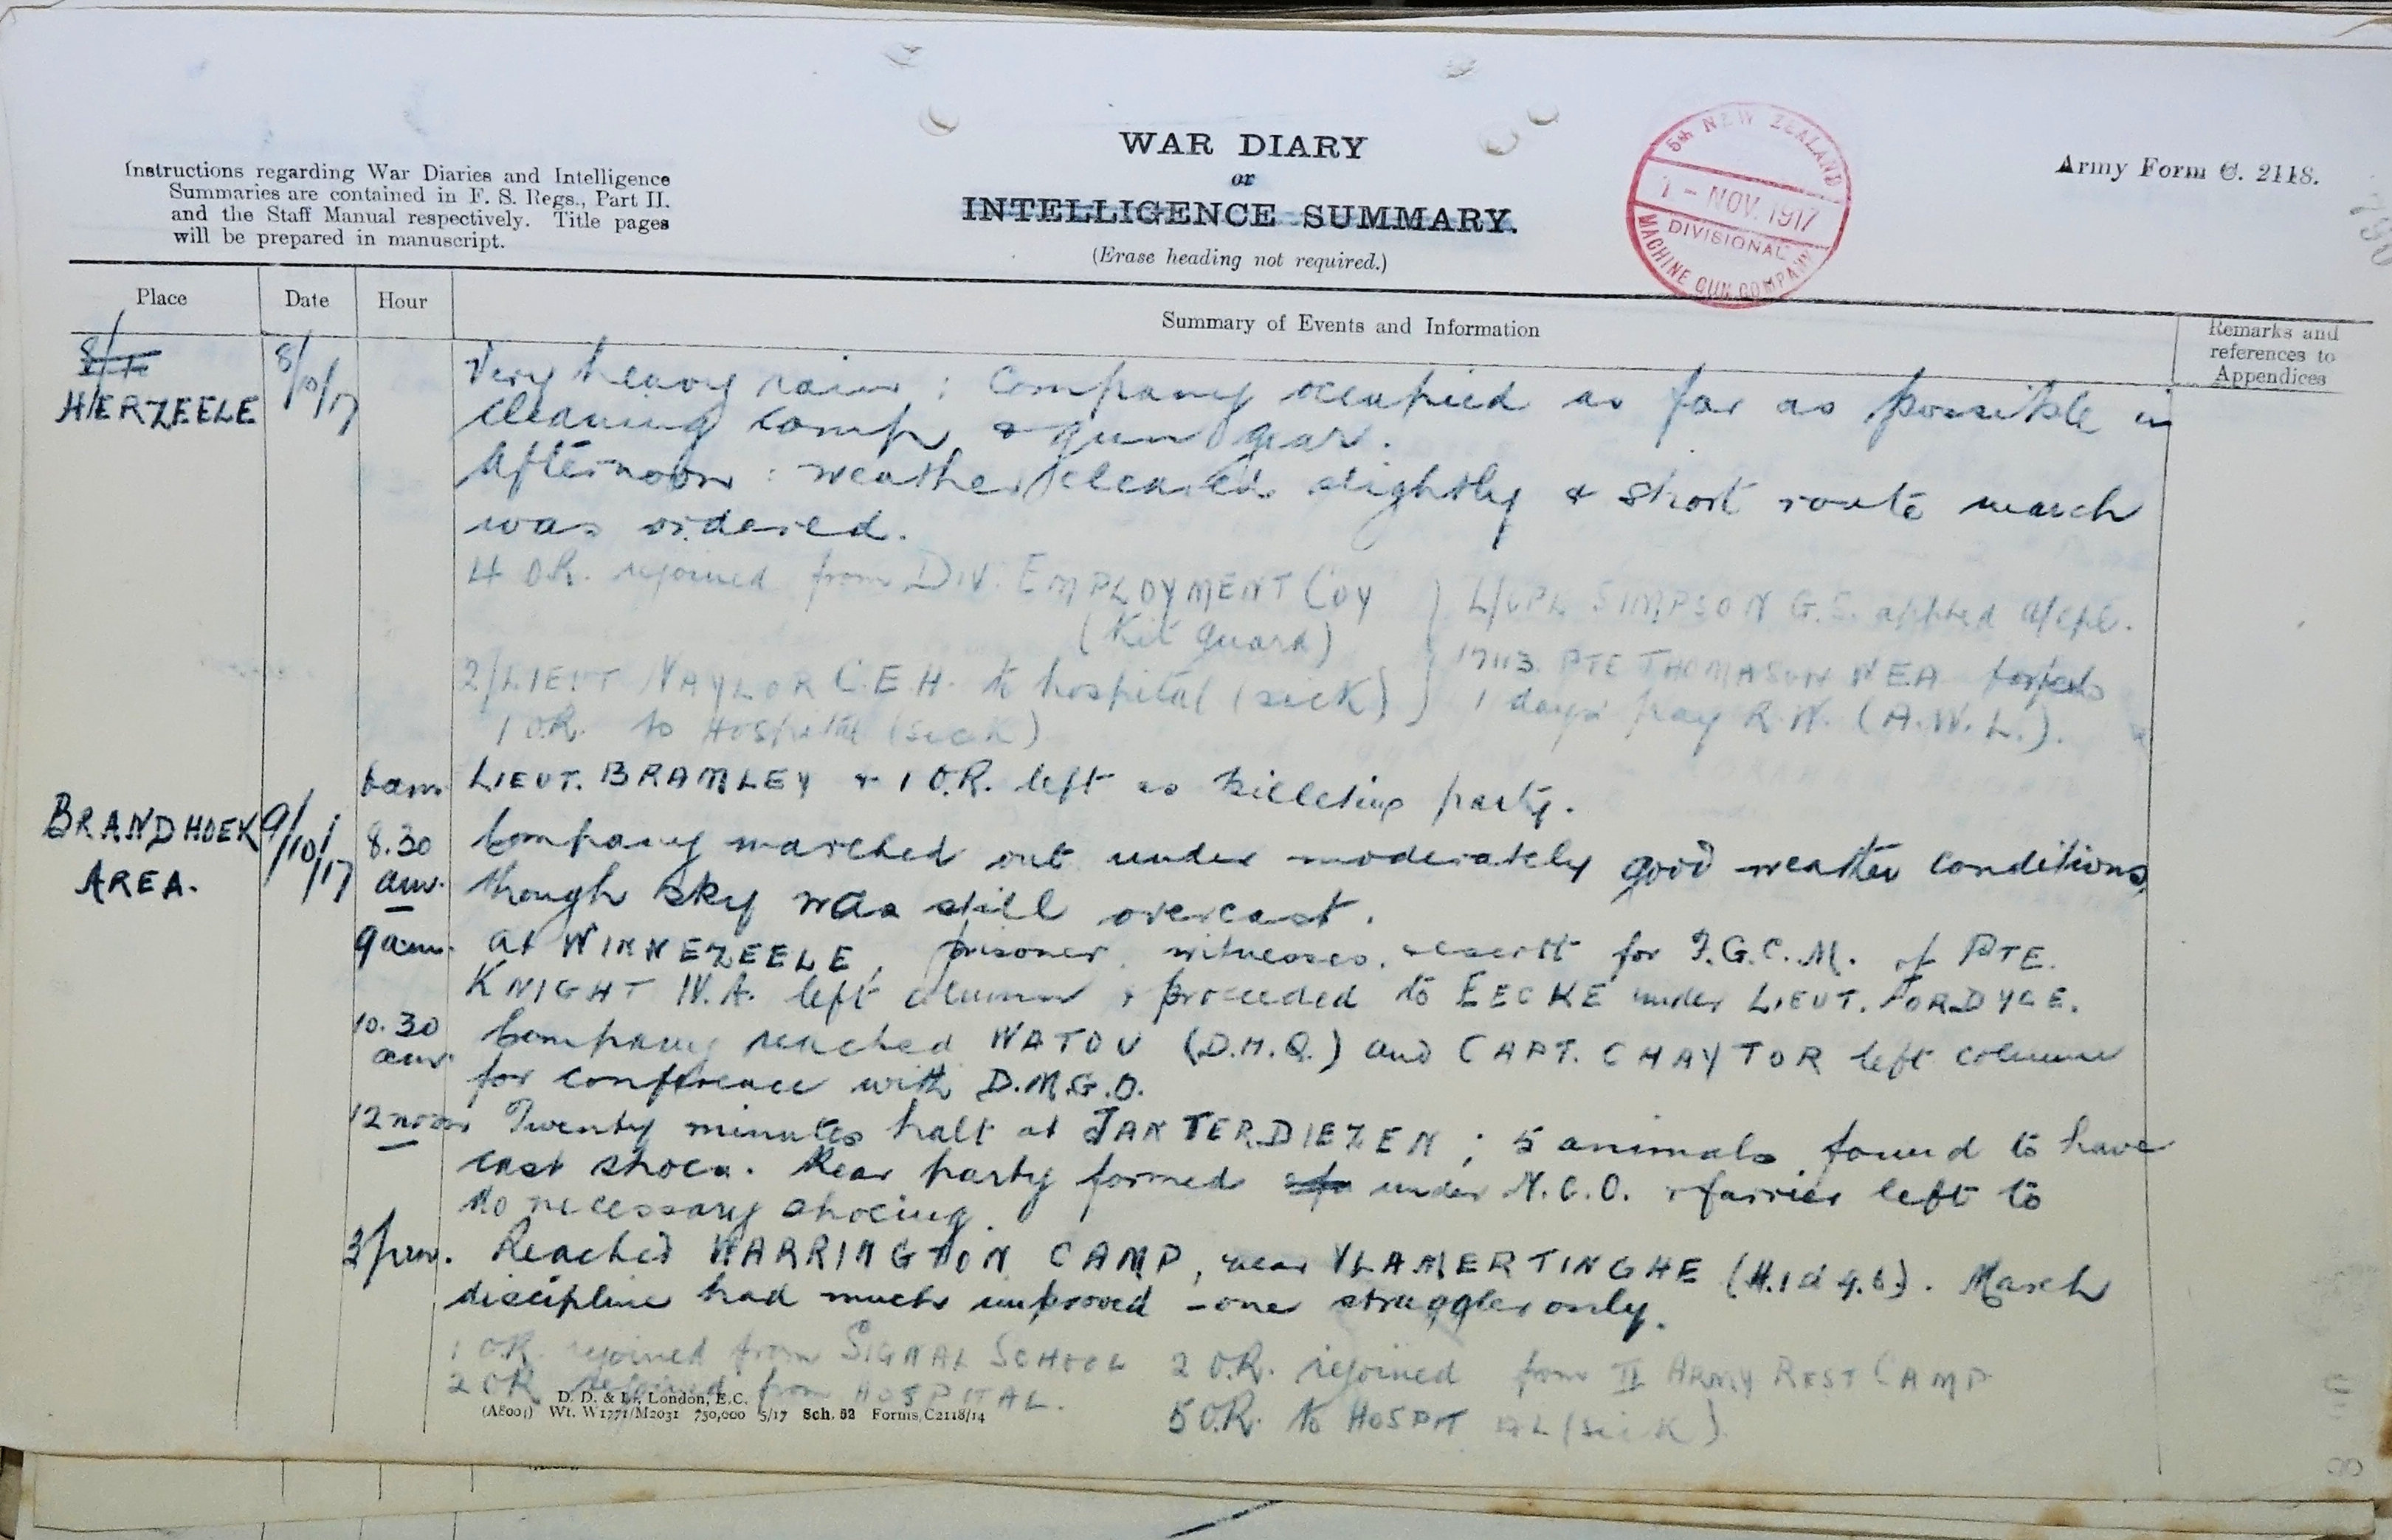 Instructions regarding War Diaries and Intelligence
Summaries are contained in F. S. Regs., Part II.
and the Staff Manual respectively. Title pages
will be prepared in manuscript.
WAR DIARY
or
INTELLIGENCE SUMMARY.
(Erase heading not required.)
5th NEW ZEALAND
1 - NOV. 1917
DIVISIONAL
MACHINE GUN COMPANY
Army Form C. 2118.
Place Date Hour Summary of Events and Information Remarks and
references to
Appendices
HERZEELE 8/10/17 Very heavy rain; Company occupied as far as possible in
cleaning camp & gun gear.
Afternoon: weather cleared slightly & short route march
was ordered.
4 O.R. rejoined from DIV. EMPLOYMENT COY
(Kit guard)
2/LIEUT NAYLOR C.E.H. to hospital (sick)
1 O.R. to Hospital (sick)
L/CPL SIMPSON G.S. appted a/cpl.
17113 PTE THOMASON W.E.A. forfeits
1 days pay R.W. (A.W.L.).
BRANDHOEK AREA. 9/10/17
6am. LIEUT. BRAMLEY & 1 O.R. left as billeting party.
8.30 am. Company marched out under moderately good weather conditions,
though sky was still overcast.
9am. at WINNEZEELE, prisoner, witnesses, escort for F.G.C.M. of PTE.
KNIGHT W.A. left column & proceeded to EECKE under LIEUT. FORDYCE.
10.30 am. Company reached WATOU (D.H.Q.) and CAPT. CHAYTOR left column
for conference with D.M.G.O.
12 noon Twenty minutes halt at JAN TER DIEZEN; 5 animals found to have
cast shoes. Rear party formed under N.C.O. & farrier left to
do necessary shoeing.
3pm. Reached WARRINGTON CAMP, near VLAMERTINGHE (H.1d 9.6). March
discipline had much improved - one straggler only.
1 O.R. rejoined from SIGNAL SCHOOL 2 O.R. rejoined from II ARMY REST CAMP
2 OR rejoined from HOSPITAL.
5 O.R. to HOSPITAL (sick)
D. D. & L., London, E.C.
(A8001) Wt. W1771/M2031 750,000 5/17 Sch. 52 Forms/C2118/14